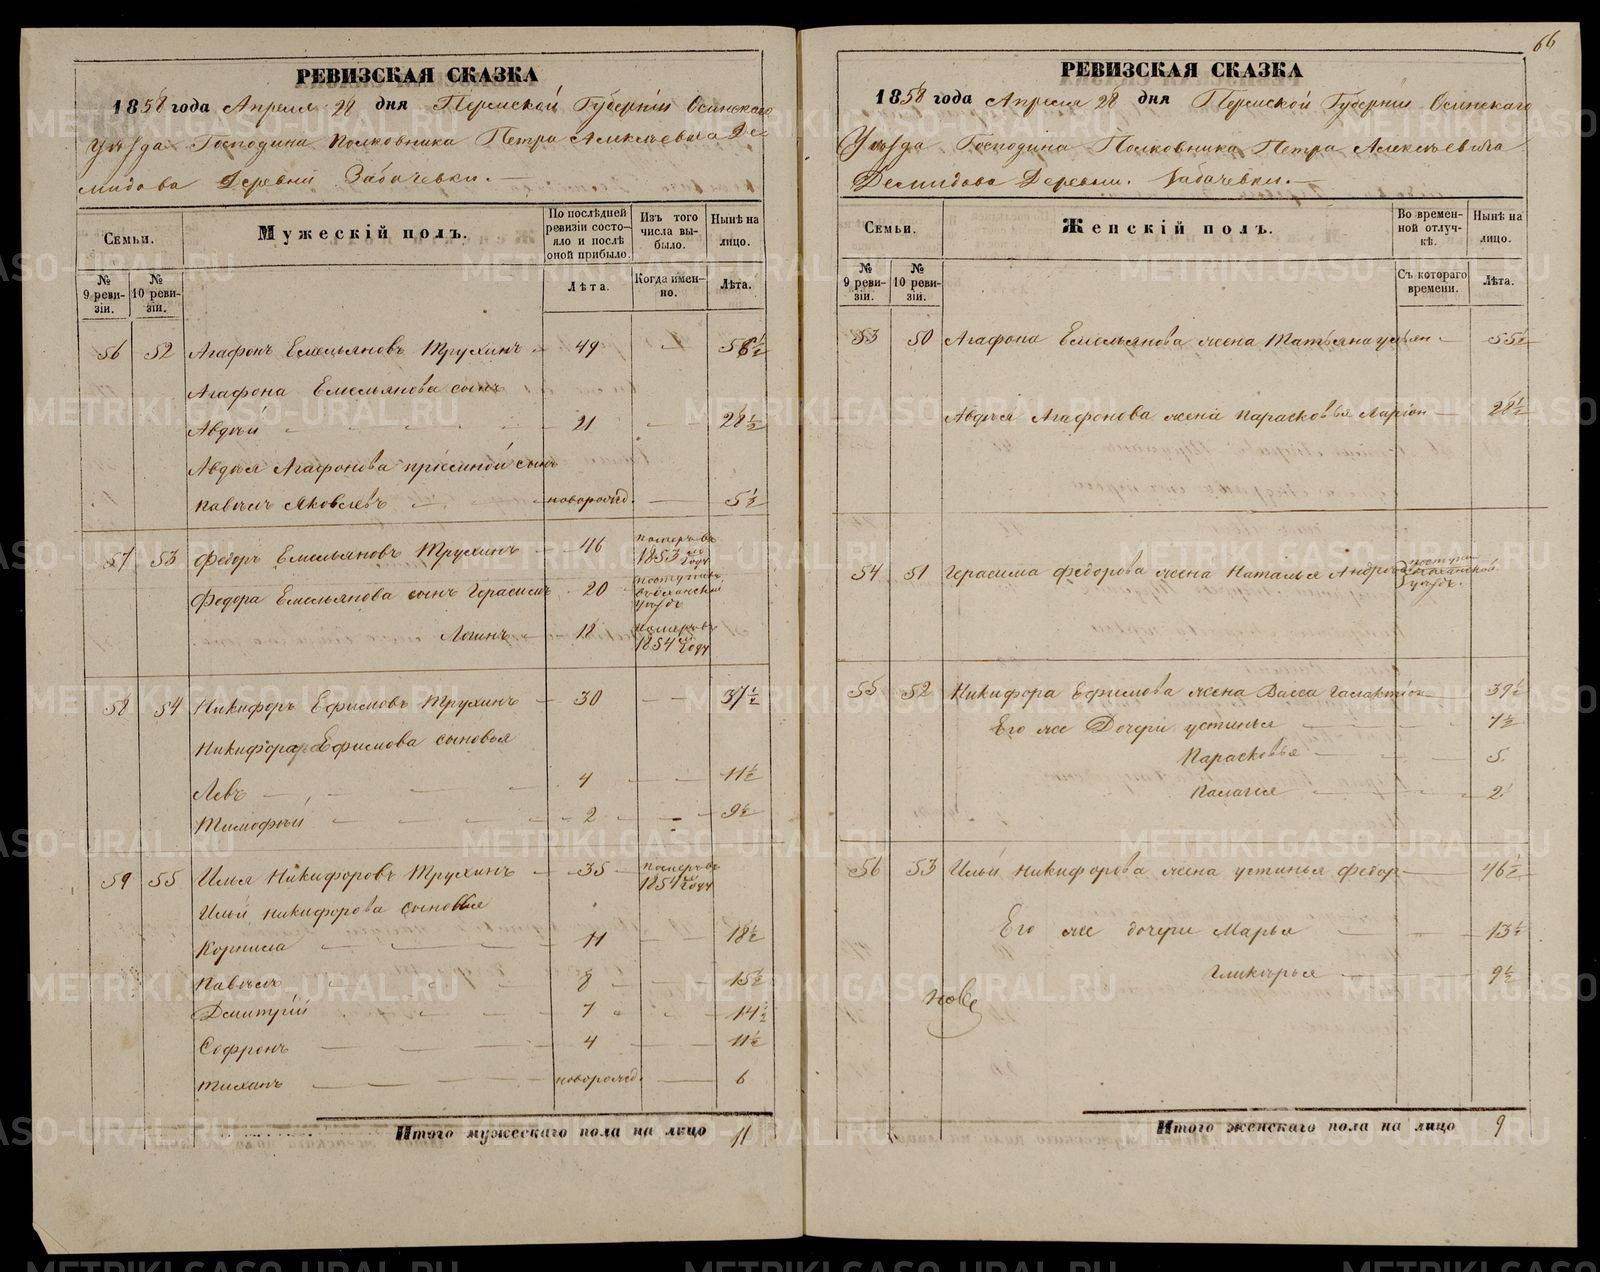 РЕВИЗСКАЯ СКАЗКА
1858 года Апреля 28 дня Пермской Губерніи Осинскаго
Уѣзда Господина Полковника Петра Алексѣевича Де-
мидова Деревни Забачевки.
Семьи.
Мужескій полъ.
По послѣдней ревизіи состо-яло и послѣ оной прибыло.
Изъ того числа вы-было.
Нынѣ на лицо.
№ 9 реви-зіи.
№ 10 реви-зіи.
Лѣта.
Когда имен-но.
Лѣта.
56 52 Агафонъ Емельяновъ Трухинъ 49 56½
Агафона Емельянова сынъ
Авдѣй 21 28½
Авдѣя Агафонова пріемной сынъ
Павелъ Яковлевъ новорожд. 5½
57 53 Федоръ Емельяновъ Трухинъ 46 померъ въ 1853 году
Федора Емельянова сынъ Герасимъ 20 поступилъ уѣздъ
Логинъ 18 померъ въ 1854 году
58 54 Никифоръ Ефимовъ Трухинъ 30 37½
Никифора Ефимова сыновья
Левъ 4 11½
Тимофѣй 2 9½
59 55 Илья Никифоровъ Трухинъ 35 померъ въ 1854 году
Ильи Никифорова сыновья
Корнила 11 18½
Павелъ 8 15½
Дмитрій 7 14½
Софронъ 4 11½
Тиханъ новорожд. 6
Итого мужескаго пола на лицо 11
66
РЕВИЗСКАЯ СКАЗКА
1858 года Апреля 28 дня Пермской Губерніи Осинскаго
Уѣзда Господина Полковника Петра Алексѣевича
Демидова Деревни Забачевки.
Семьи.
Женскій полъ.
Во времен-ной отлуч-кѣ.
Нынѣ на лицо.
№ 9 реви-зіи.
№ 10 реви-зіи.
Съ котораго времени.
Лѣта.
53 50 Агафона Емельянова жена Татьяна Ульян 55½
Авдѣя Агафонова жена Парасковья Ларіон 28½
54 51 Герасима Федорова жена Наталья Андрѣева уѣздъ.
55 52 Никифора Ефимова жена Васса Галактіон 39½
Его же Дочери Устинья 7½
Парасковья 5
Палагея 2
56 53 Ильи Никифорова жена Устинья Федор 46½
Его же дочери Марья 13½
Гликерья 9½
Итого женскаго пола на лицо 9
METRIKI.GASO-URAL.RU